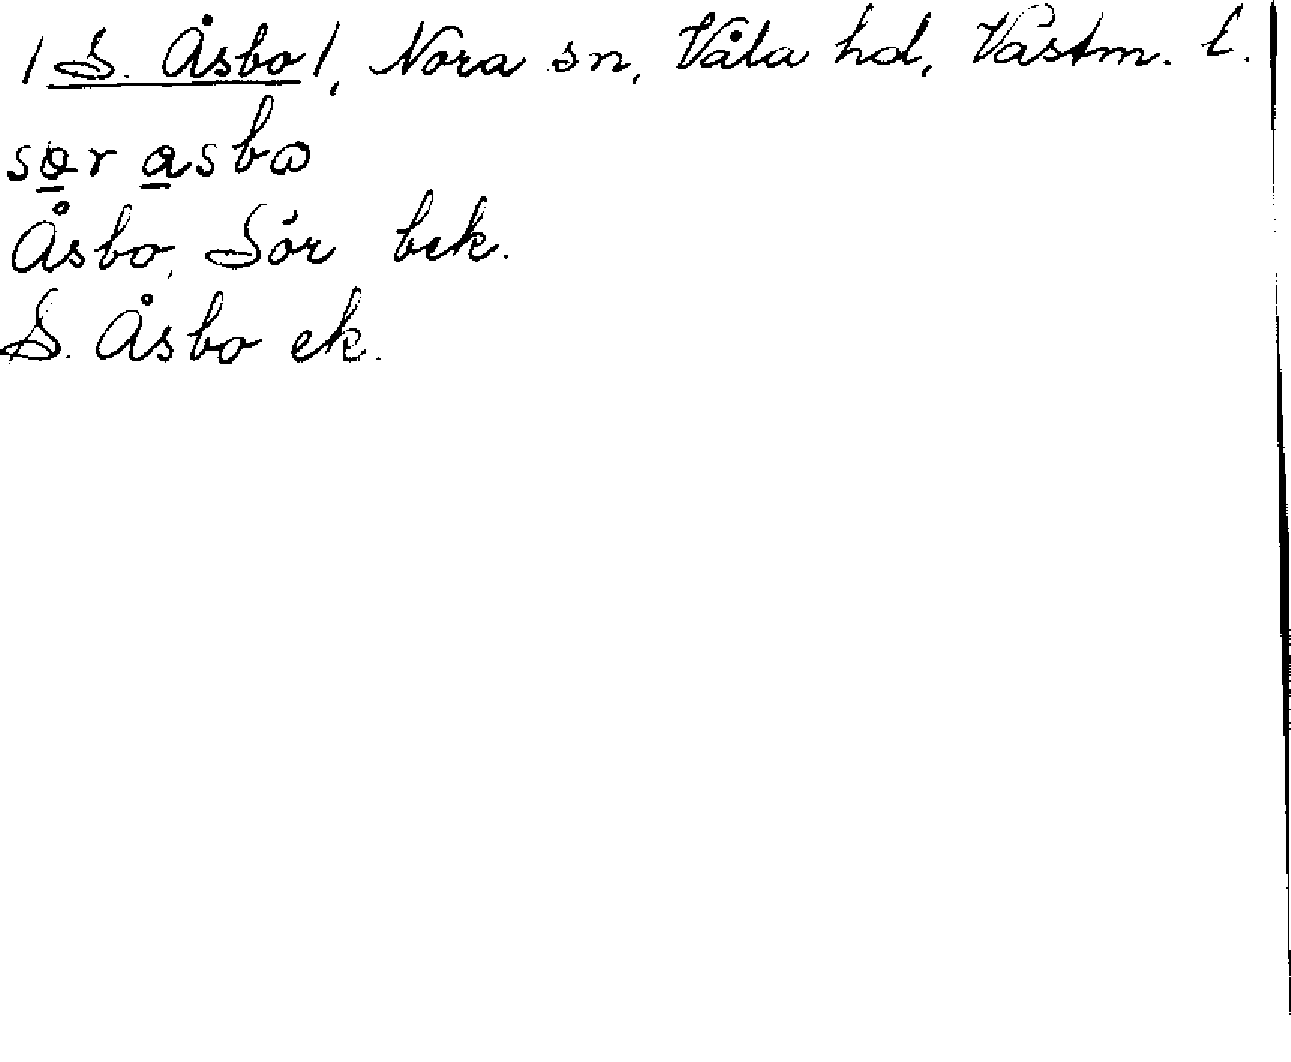 /S. Åsbo/, Nora sn, Våla hd, Västm. l.
sør asbω
Åsbo, Sör bek.
S. Åsbo ek.